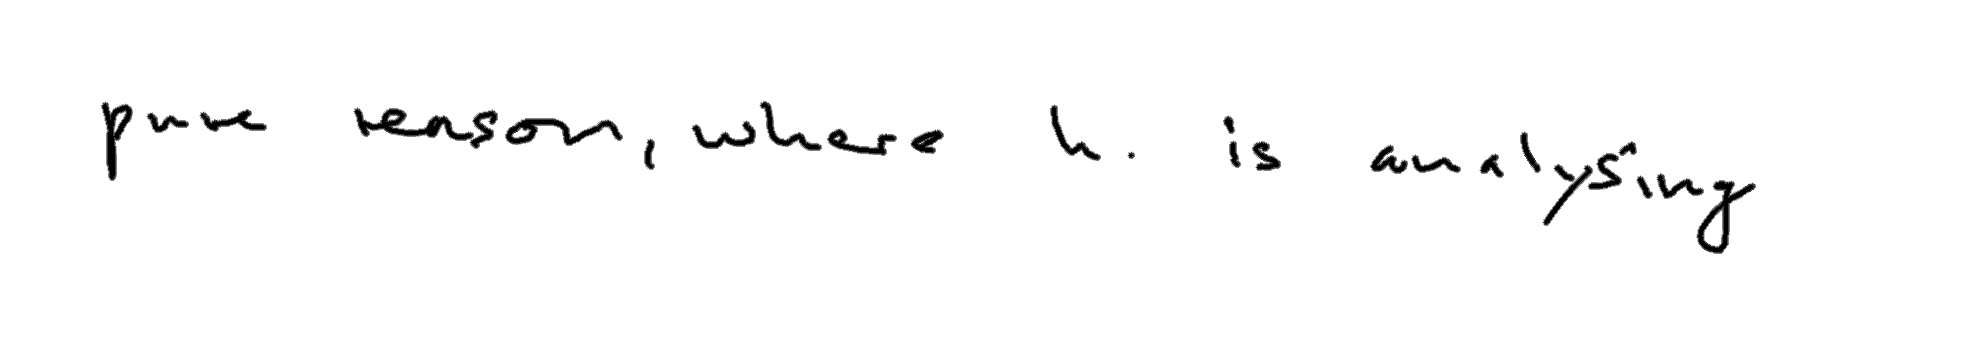 pure reason, where h. is analysing